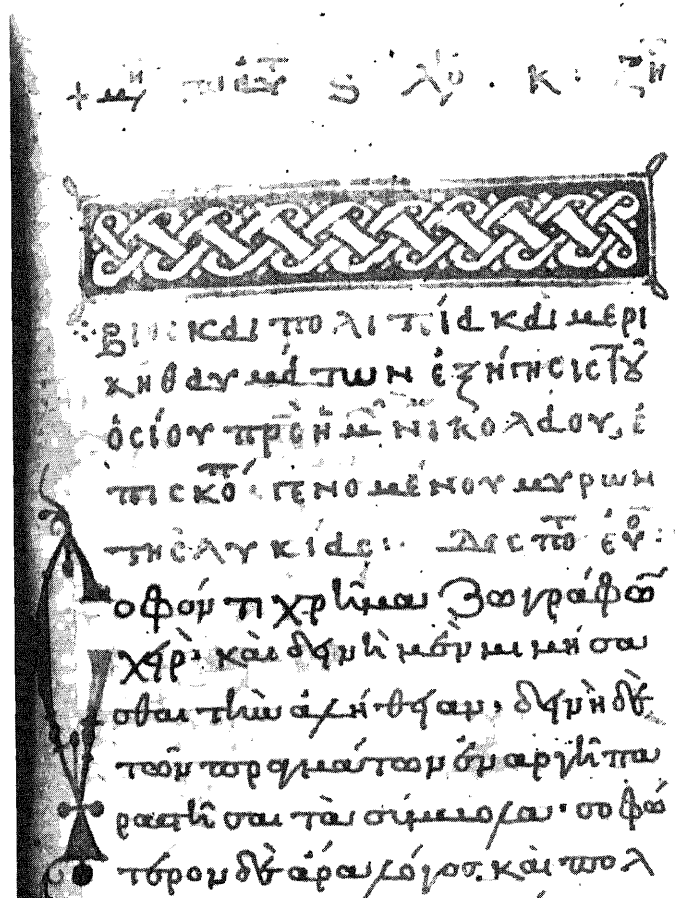 + μη τω αυ ς λγ . κ : ζη
βίος καὶ πολιτεία καὶ μερι
κὴ θαυμάτων ἐξήγησις τοῦ
ὁσίου πρς ἡμῶν νικολάου, ἐ
πισκόπ γενομένου μύρων
τῆς λυκίας : Δεσπο εὐ :
Σοφόν τι χρῆμα ζωγράφων
χείρ· καὶ δεινὴ μὲν μιμήσα
σθαι τὴν ἀλήθειαν, δεινὴ δὲ
τῶν πραγμάτων ἐναργῆ πα
ραστῆσαι τὰ σύμβολα· σοφώ
τερον δὲ ἄρα λόγος, καὶ πολ